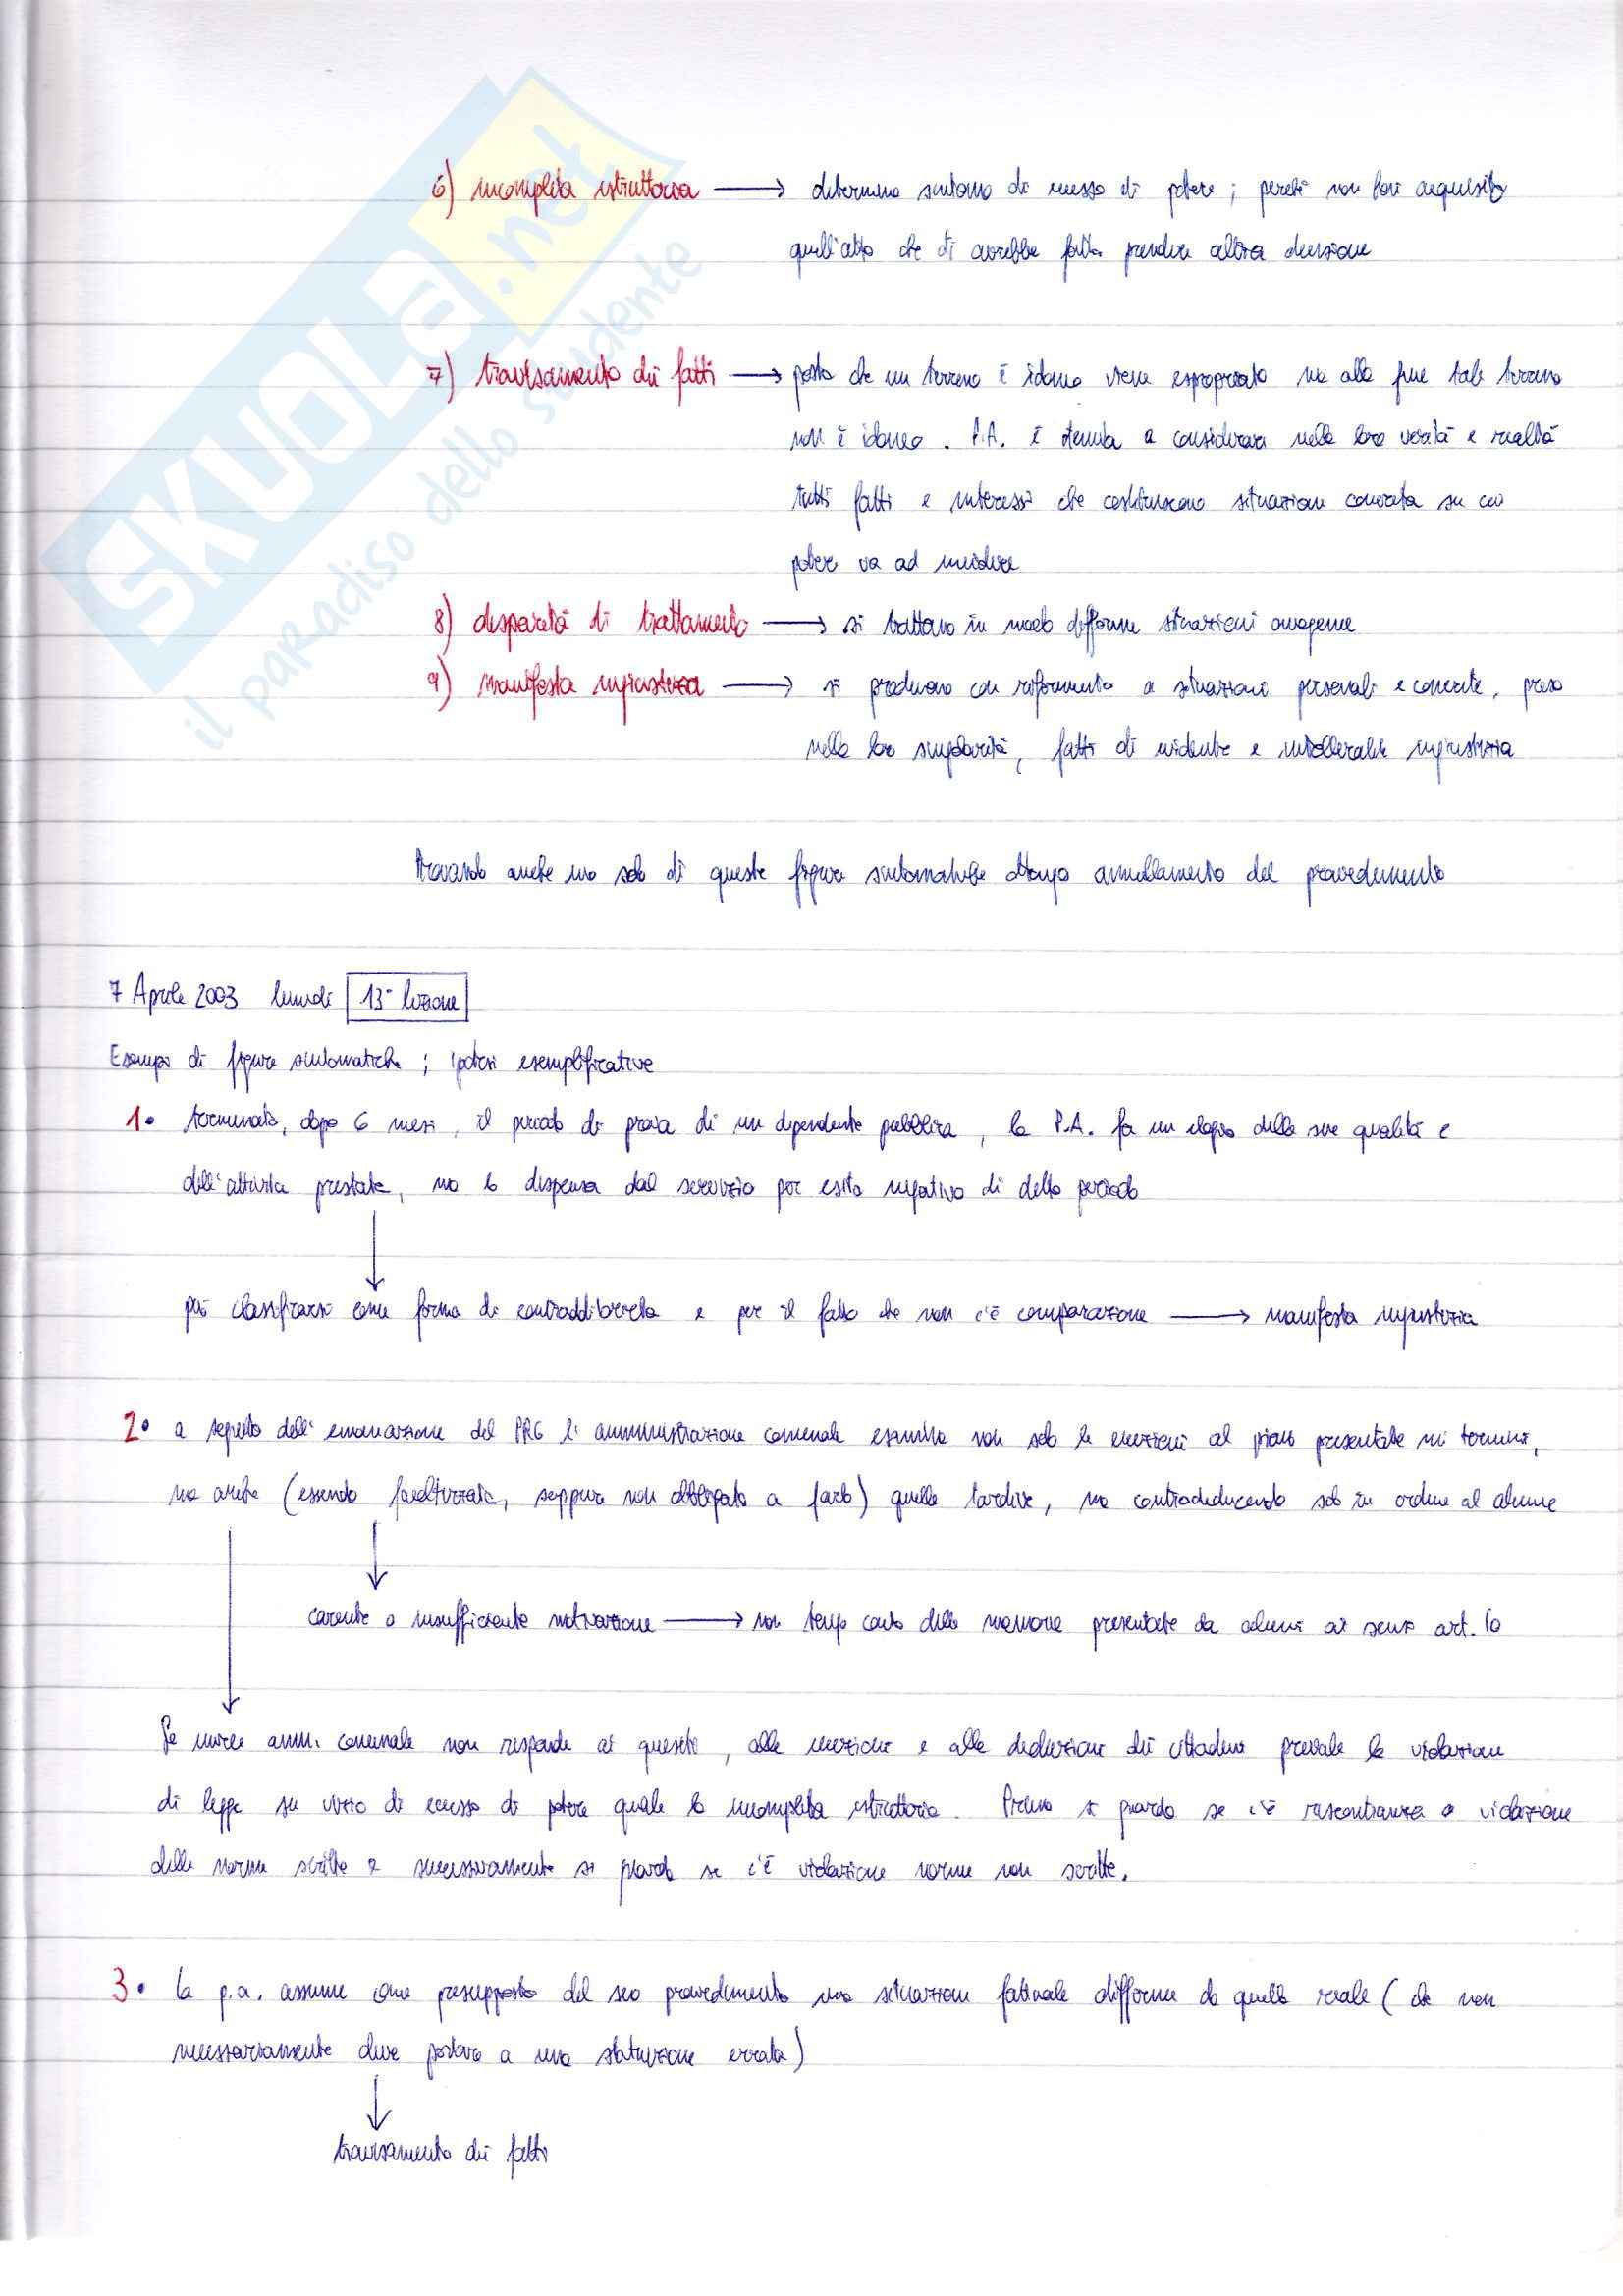 SKUOLA.net
il paradiso dello studente
6) incompleta istruttoria → determina sintomo di eccesso di potere ; perché non fai acquisito
quell'atto che ti avrebbe fatto prendere altra decisione
7) travisamento dei fatti → posto che un terreno è idoneo viene espropriato ma alla fine tale terreno
non è idoneo. P.A. è tenuta a considerare nella loro verità e realtà
tutti fatti e interessi che costituiscono situazione concreta su cui
potere va ad incidere
8) disparità di trattamento → si trattano in modo difforme situazioni omogenee
9) manifesta ingiustizia → si producono con riferimento a situazioni personali e concrete, prese
nella loro singolarità, fatti di evidente e intollerabile ingiustizia
trovando anche una sola di queste figure sintomatiche ottengo annullamento del provvedimento
7 Aprile 2003 lunedì 13ª lezione
Esempi di figure sintomatiche ; ipotesi esemplificative
1• terminato, dopo 6 mesi, il periodo di prova di un dipendente pubblico, la P.A. fa un elogio delle sue qualità e
dell'attività prestata, ma lo dispensa dal servizio per esito negativo di detto periodo
può classificarsi come forma di contraddittorietà e per il fatto che non c'è comparazione → manifesta ingiustizia
2• a seguito dell'emanazione del PRG l'amministrazione comunale esamina non solo le eccezioni al piano presentate nei termini,
ma anche (essendo facoltizzata, seppure non obbligata a farlo) quelle tardive, ma controdeducendo solo in ordine ad alcune
carente o insufficiente motivazione → non tengo conto delle memorie presentate da alcuni ai sensi art. 10
Se invece amm. comunale non risponde ai quesiti, alle eccezioni e alle deduzioni dei cittadini prevale la violazione
di legge su vizio di eccesso di potere quale la incompleta istruttoria. Prima si guarda se c'è violazione
delle norme scritte e successivamente si guarda se c'è violazione norme non scritte.
3• la p.a. assume come presupposto del suo provvedimento una situazione fattuale difforme da quella reale (che non
necessariamente deve portare a una statuizione errata)
travisamento dei fatti